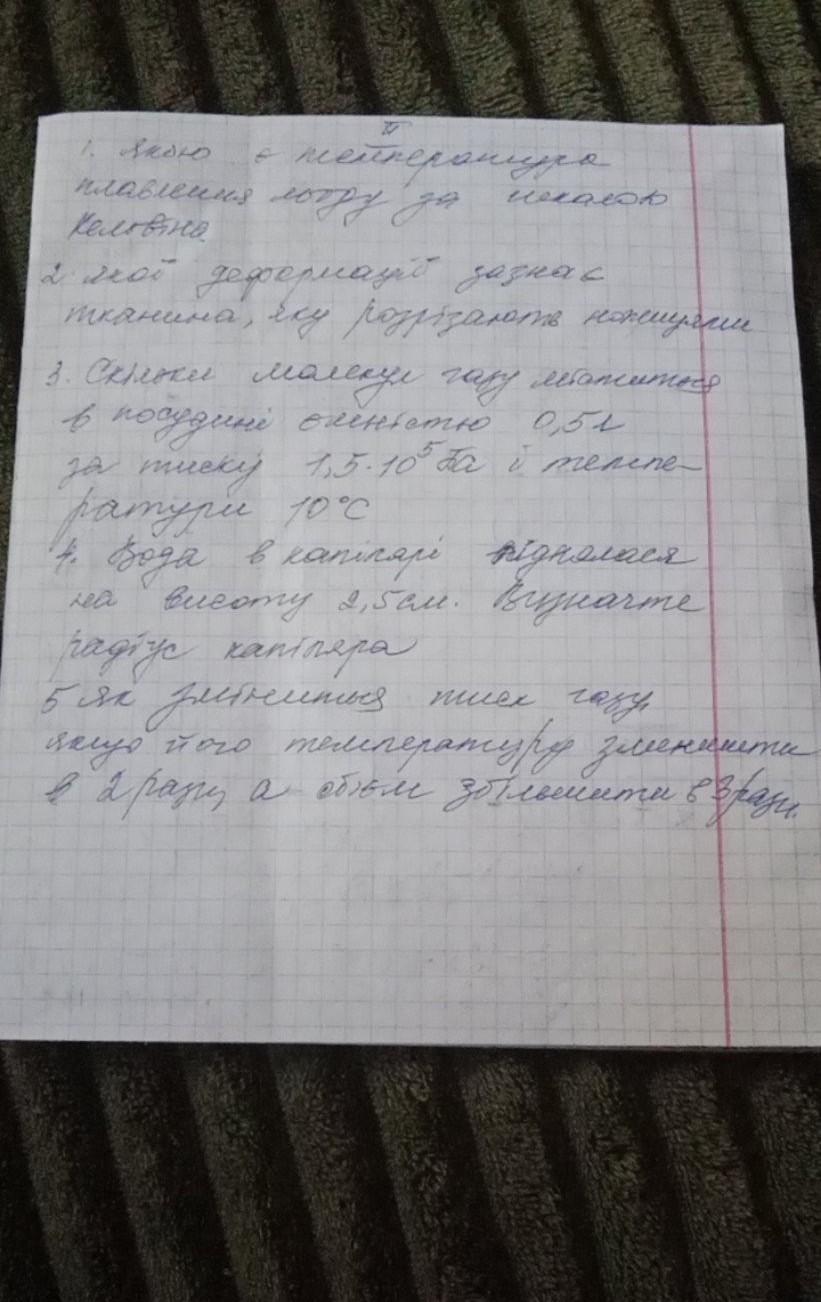 II
1. Якою є температура
плавлення льоду за шкалою
Кельвіна
2. якої деформації зазнає
тканина, яку розрізають ножицями
3. Скільки молекул газу міститься
в посудині ємністю 0,5 л
за тиску 1,5·10⁵ Па і темпе-
ратури 10°C
4. Вода в капілярі піднялася
на висоту 2,5 см. Визначте
радіус капіляра
5 Як зміниться тиск газу,
якщо його температуру зменшити
в 2 рази, а об'єм збільшити в 3 рази.